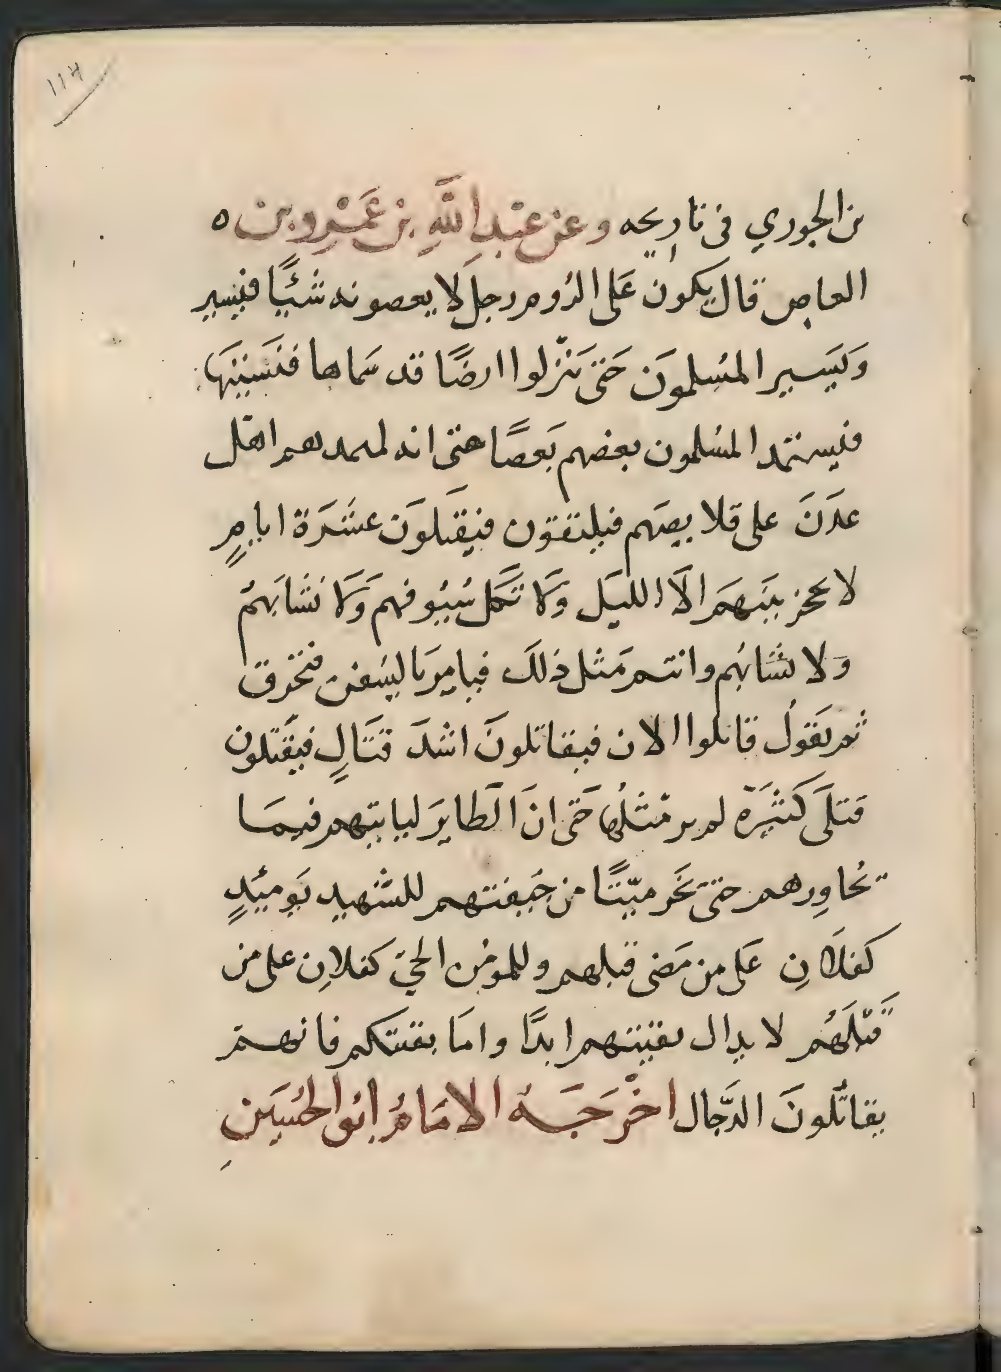 ١١٣
بن الجوزي في تاريخه وعن عَبْدِ اللَّهِ بن عَمْرِو بن ه
العاص قال يكون عَلى الرُوم رجل لا يعصونه شَيًْا فيسير
وَيَسير المسُلمونَ حَتى يَنْزلوا ارضًا قد سَماها
فيستمد المسُلمون بعضهم بَعضًا حتى انه لممدهم اهل
عدَنَ على قلايصهم فيلتقون فيَقتَلونَ عَشَرَة ايامٍ
لا يحجز بَينَهمَ الاَّ الليَل وَلا تَكل سُيُوفهم وَلا نشابَهُم
وَلا نشَابُهُم وانتم مَثل ذلكَ فيامرَ بالسُفن فتحرق
ثم يَقولُ قاتلوا الان فيقاتلونَ اشدَ قتَالٍ فيقَتلون
قتلَى كَثيَرة لم ير مثلُها حَتى انَ الَطايرَ لياتيهم فيمَا
يُحاوِرهم حتىَ يَخر ميّتًا من جَيفتهم للشَّهيدِ يَوميَذٍ
كفلاَنِ عَلى من مَضى قبلهم وللموُمن الحيّ كفلانِ على من
قتلَهُم لا يدال بقيتهم ابدًا وامَا بقيتكم فانهم
يقاتَلونَ الدَّجال اخْرَجَهُ الامَامُ ابُو الحُسَينِ